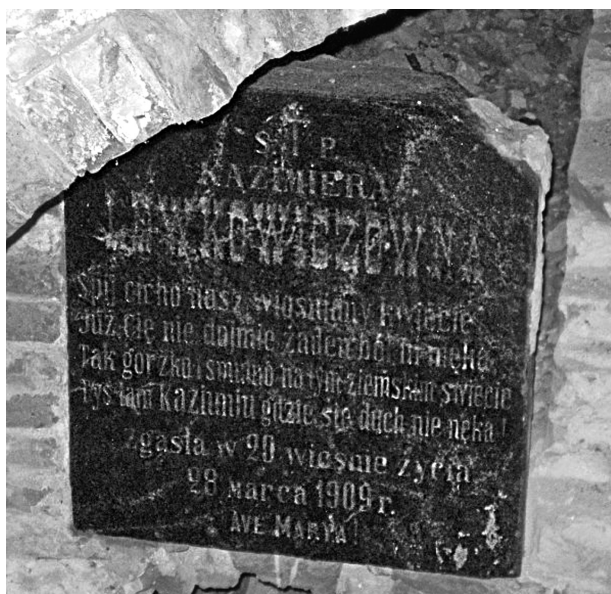 Ś. P.
KAZIMIERA
Śpij cicho nasz wiośniany kwiecie
Już Cię nie dojmie żaden ból ni męka
Tak gorzko i smutno na tym ziemskim świecie
Tyś tam Kaziuniu gdzie się duch nie nęka!
zgasła w 20 wiośnie życia
28 Marca 1909 r.
AVE MARYA!